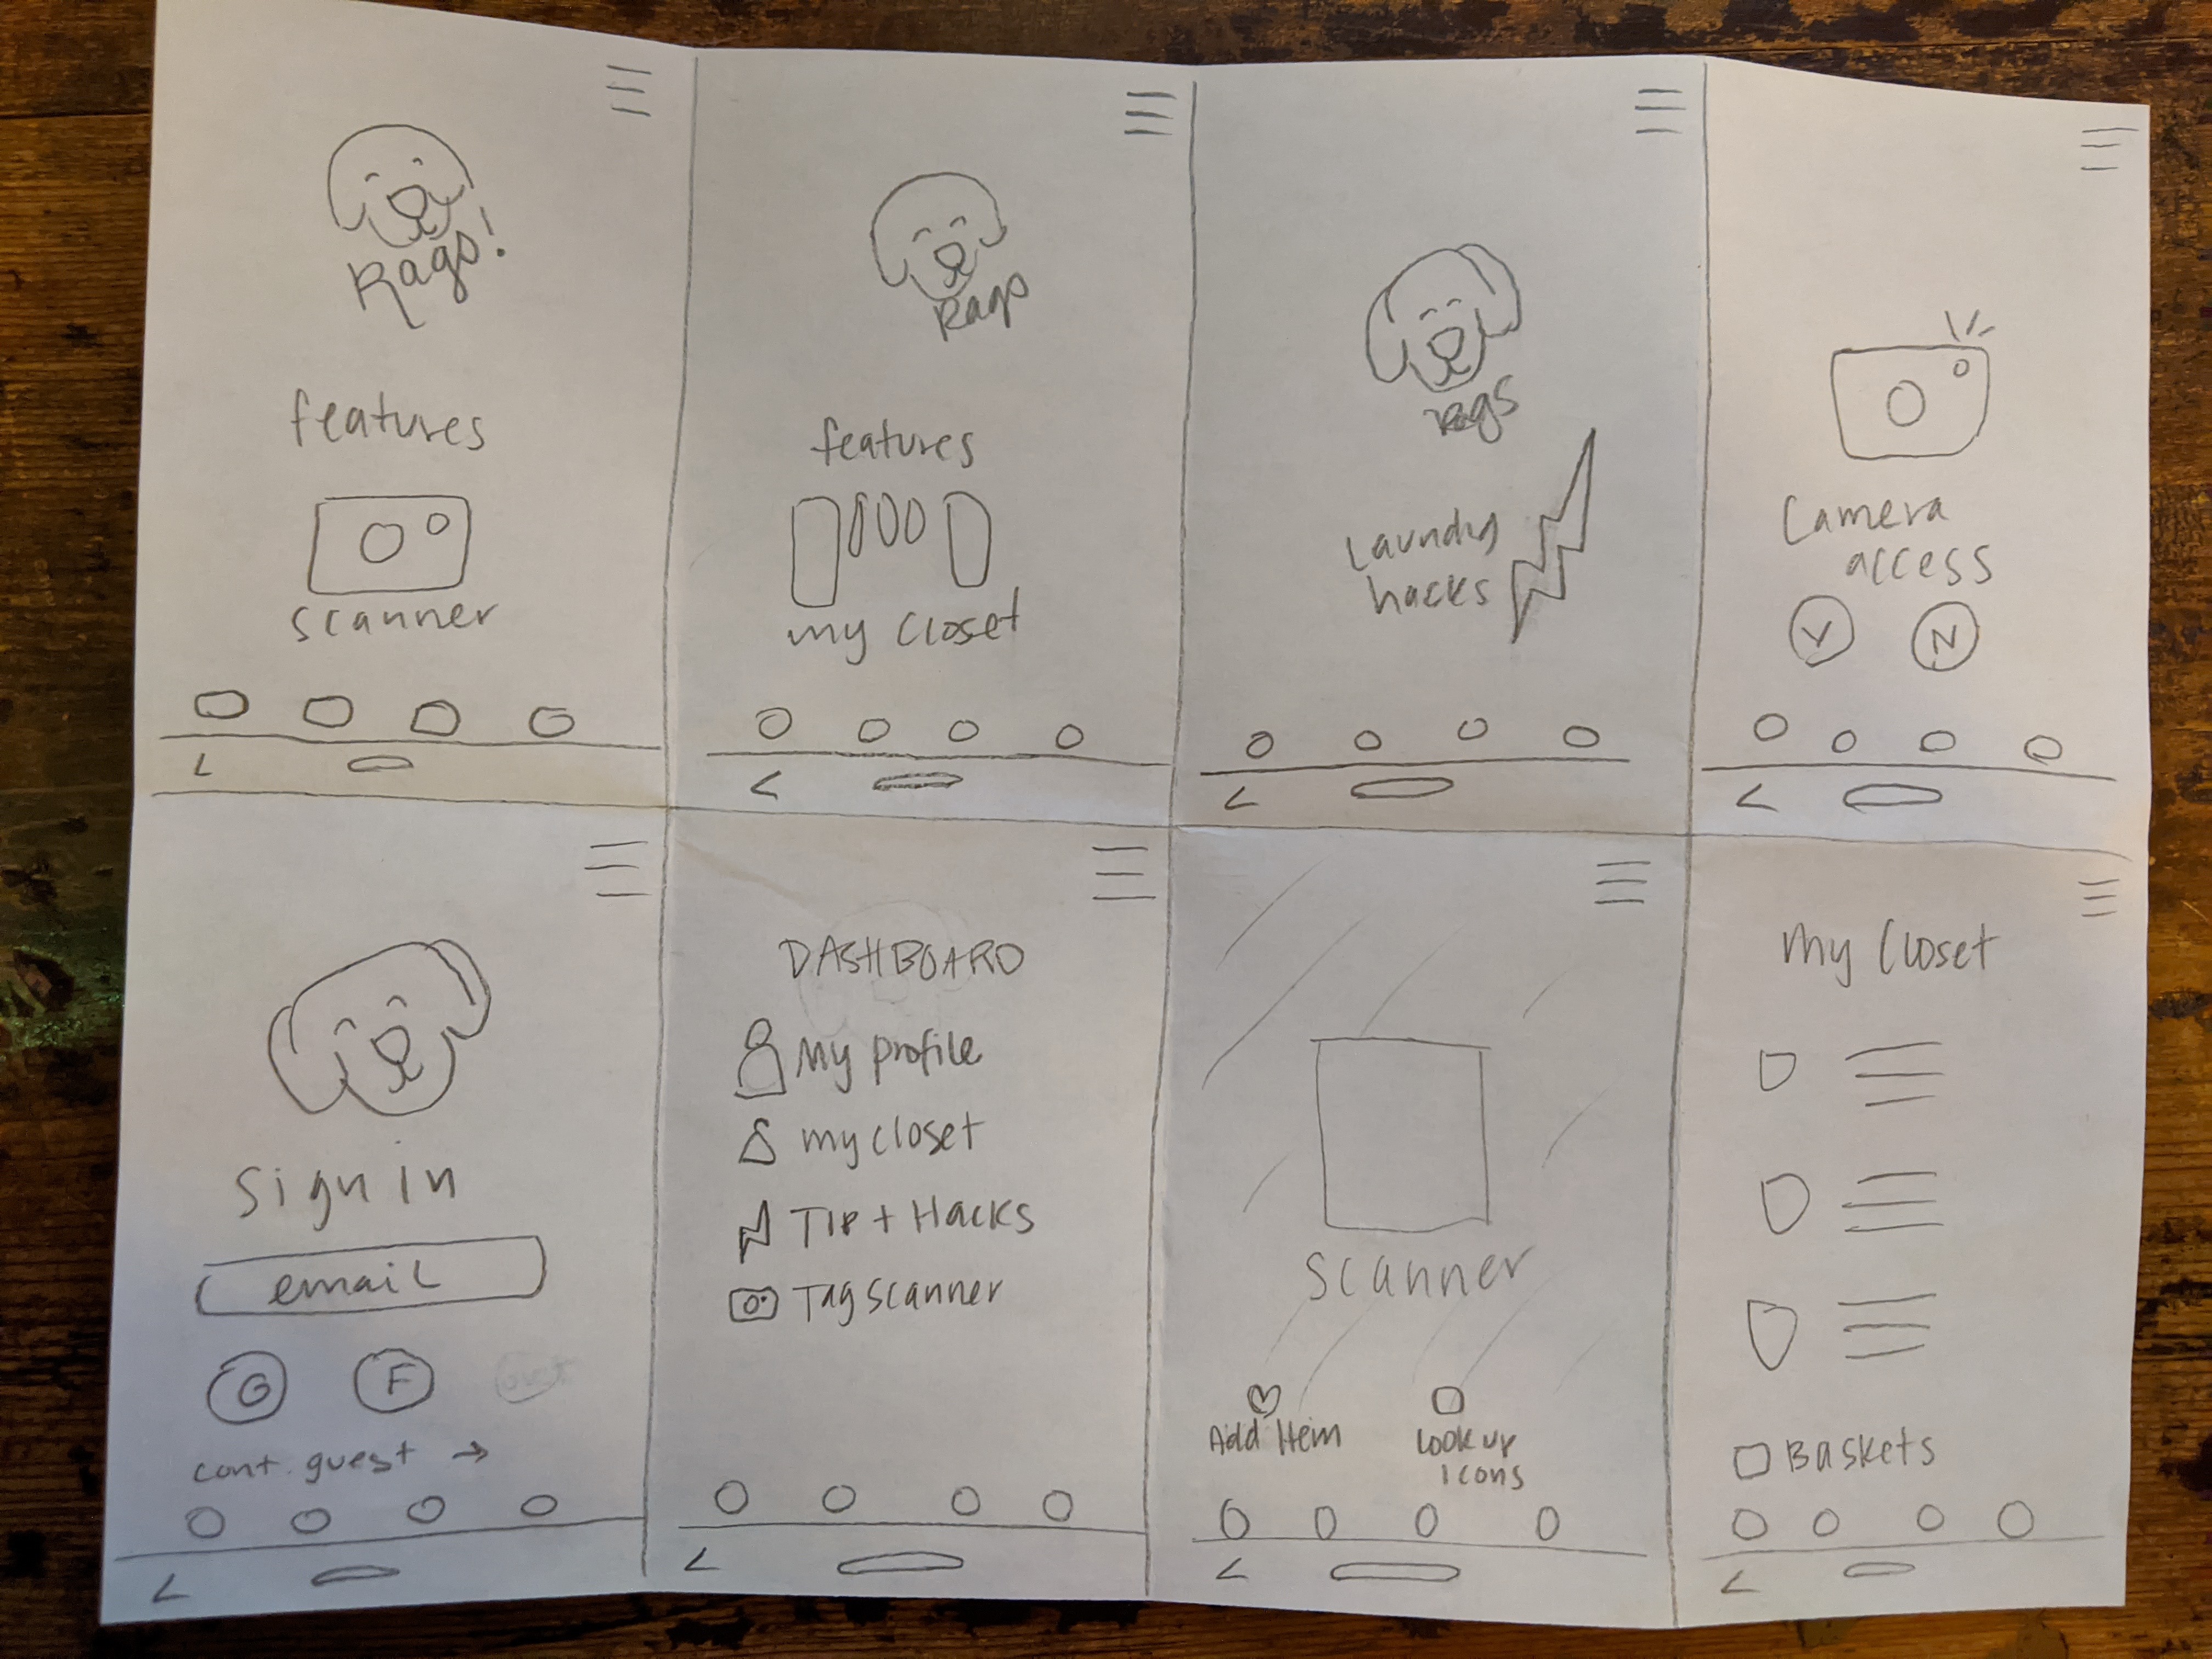 Rags!
features
scanner
Rags
features
my closet
Rags
Laundry
hacks
Camera
access
Y N
Sign in
email
G F
cont. guest →
DASHBOARD
My profile
my closet
Tip + Hacks
Tag scanner
Scanner
Add Item
Look up
icons
My Closet
Baskets